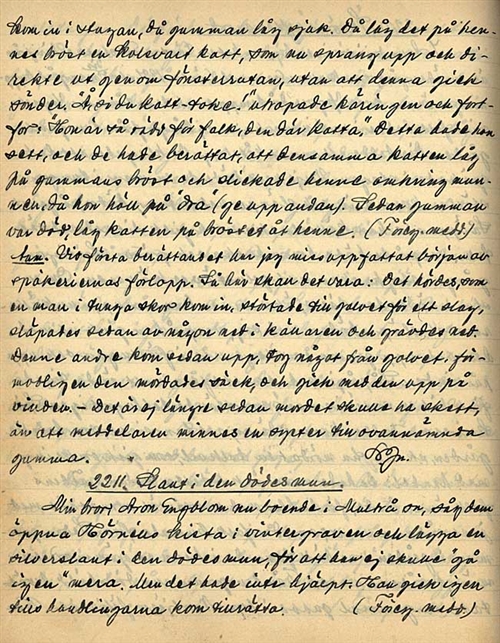 kom in i stugan, då gumman låg sjuk. Då låg det på hen-
nes bröst en kolsvart katt, som nu sprang upp och di-
rekte ut genom fönsterrutan, utan att denna gick
sönder. "Å, si du katt-toke!" utropade käringen och fort-
for: "Hon är så rädd för folk, den där katta." Detta hade han
sett, och de hade berättat, att densamma katten låg
på gummans bröst och slickade henne omkring mun-
nen, då hon höll på "dra" (ge upp andan). Sedan gumman
var död, låg katten på bröstet åt henne. (Föreg. medd.)
Anm. Vid första berättandet har jag missuppfattat början av
spökeriernas förlopp. Så här skan det vara: Det hördes, som
en man i tunga skor kom in, störtade till golvet för ett slag,
släpades sedan av någon ned i källaren och grävdes ned.
Denne andre kom sedan upp, tog något från golvet, för-
modligen den mördades säck, och gick med den upp på
vinden. – Det är ej längre sedan mordet skulle ha skett,
än att meddelaren minnes en syster till ovannämnda
gumma.
2211. Slant i den dödes mun.
Min bror Aron Engblom nu boende i Multrå sn, såg dem
öppna Hörnéns kista i vintergraven och lägga en
silverslant i den dödes mun, för att han ej skulle "gå
igen" mera. Men det hade inte hjälpt. Han gick igen
tills handlingarna kom tillrätta. (Föreg. medd.)